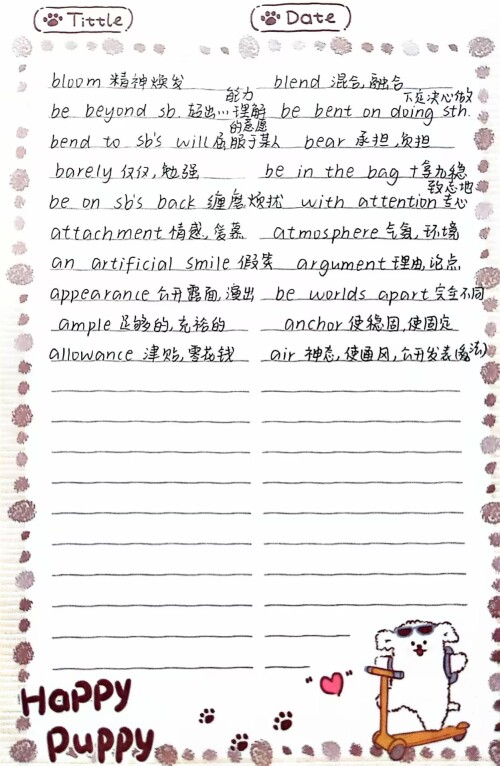 Tittle Date
bloom 精神焕发 blend 混合,融合
能力 下定决心做
be beyond sb. 超出…理解 be bent on doing sth.
的意愿
bend to sb's will 屈服于某人 bear 承担,负担
barely 仅仅,勉强 be in the bag 十拿九稳
致志地
be on sb's back 缠磨烦扰 with attention 专心
attachment 情感,爱慕 atmosphere 气氛,环境
an artificial smile 假笑 argument 理由,论点
appearance 公开露面,演出 be worlds apart 完全不同
ample 足够的,充裕的 anchor 使稳固,使固定
allowance 津贴,零花钱 air 神态,使通风,公开发表(看法)
Happy
Puppy